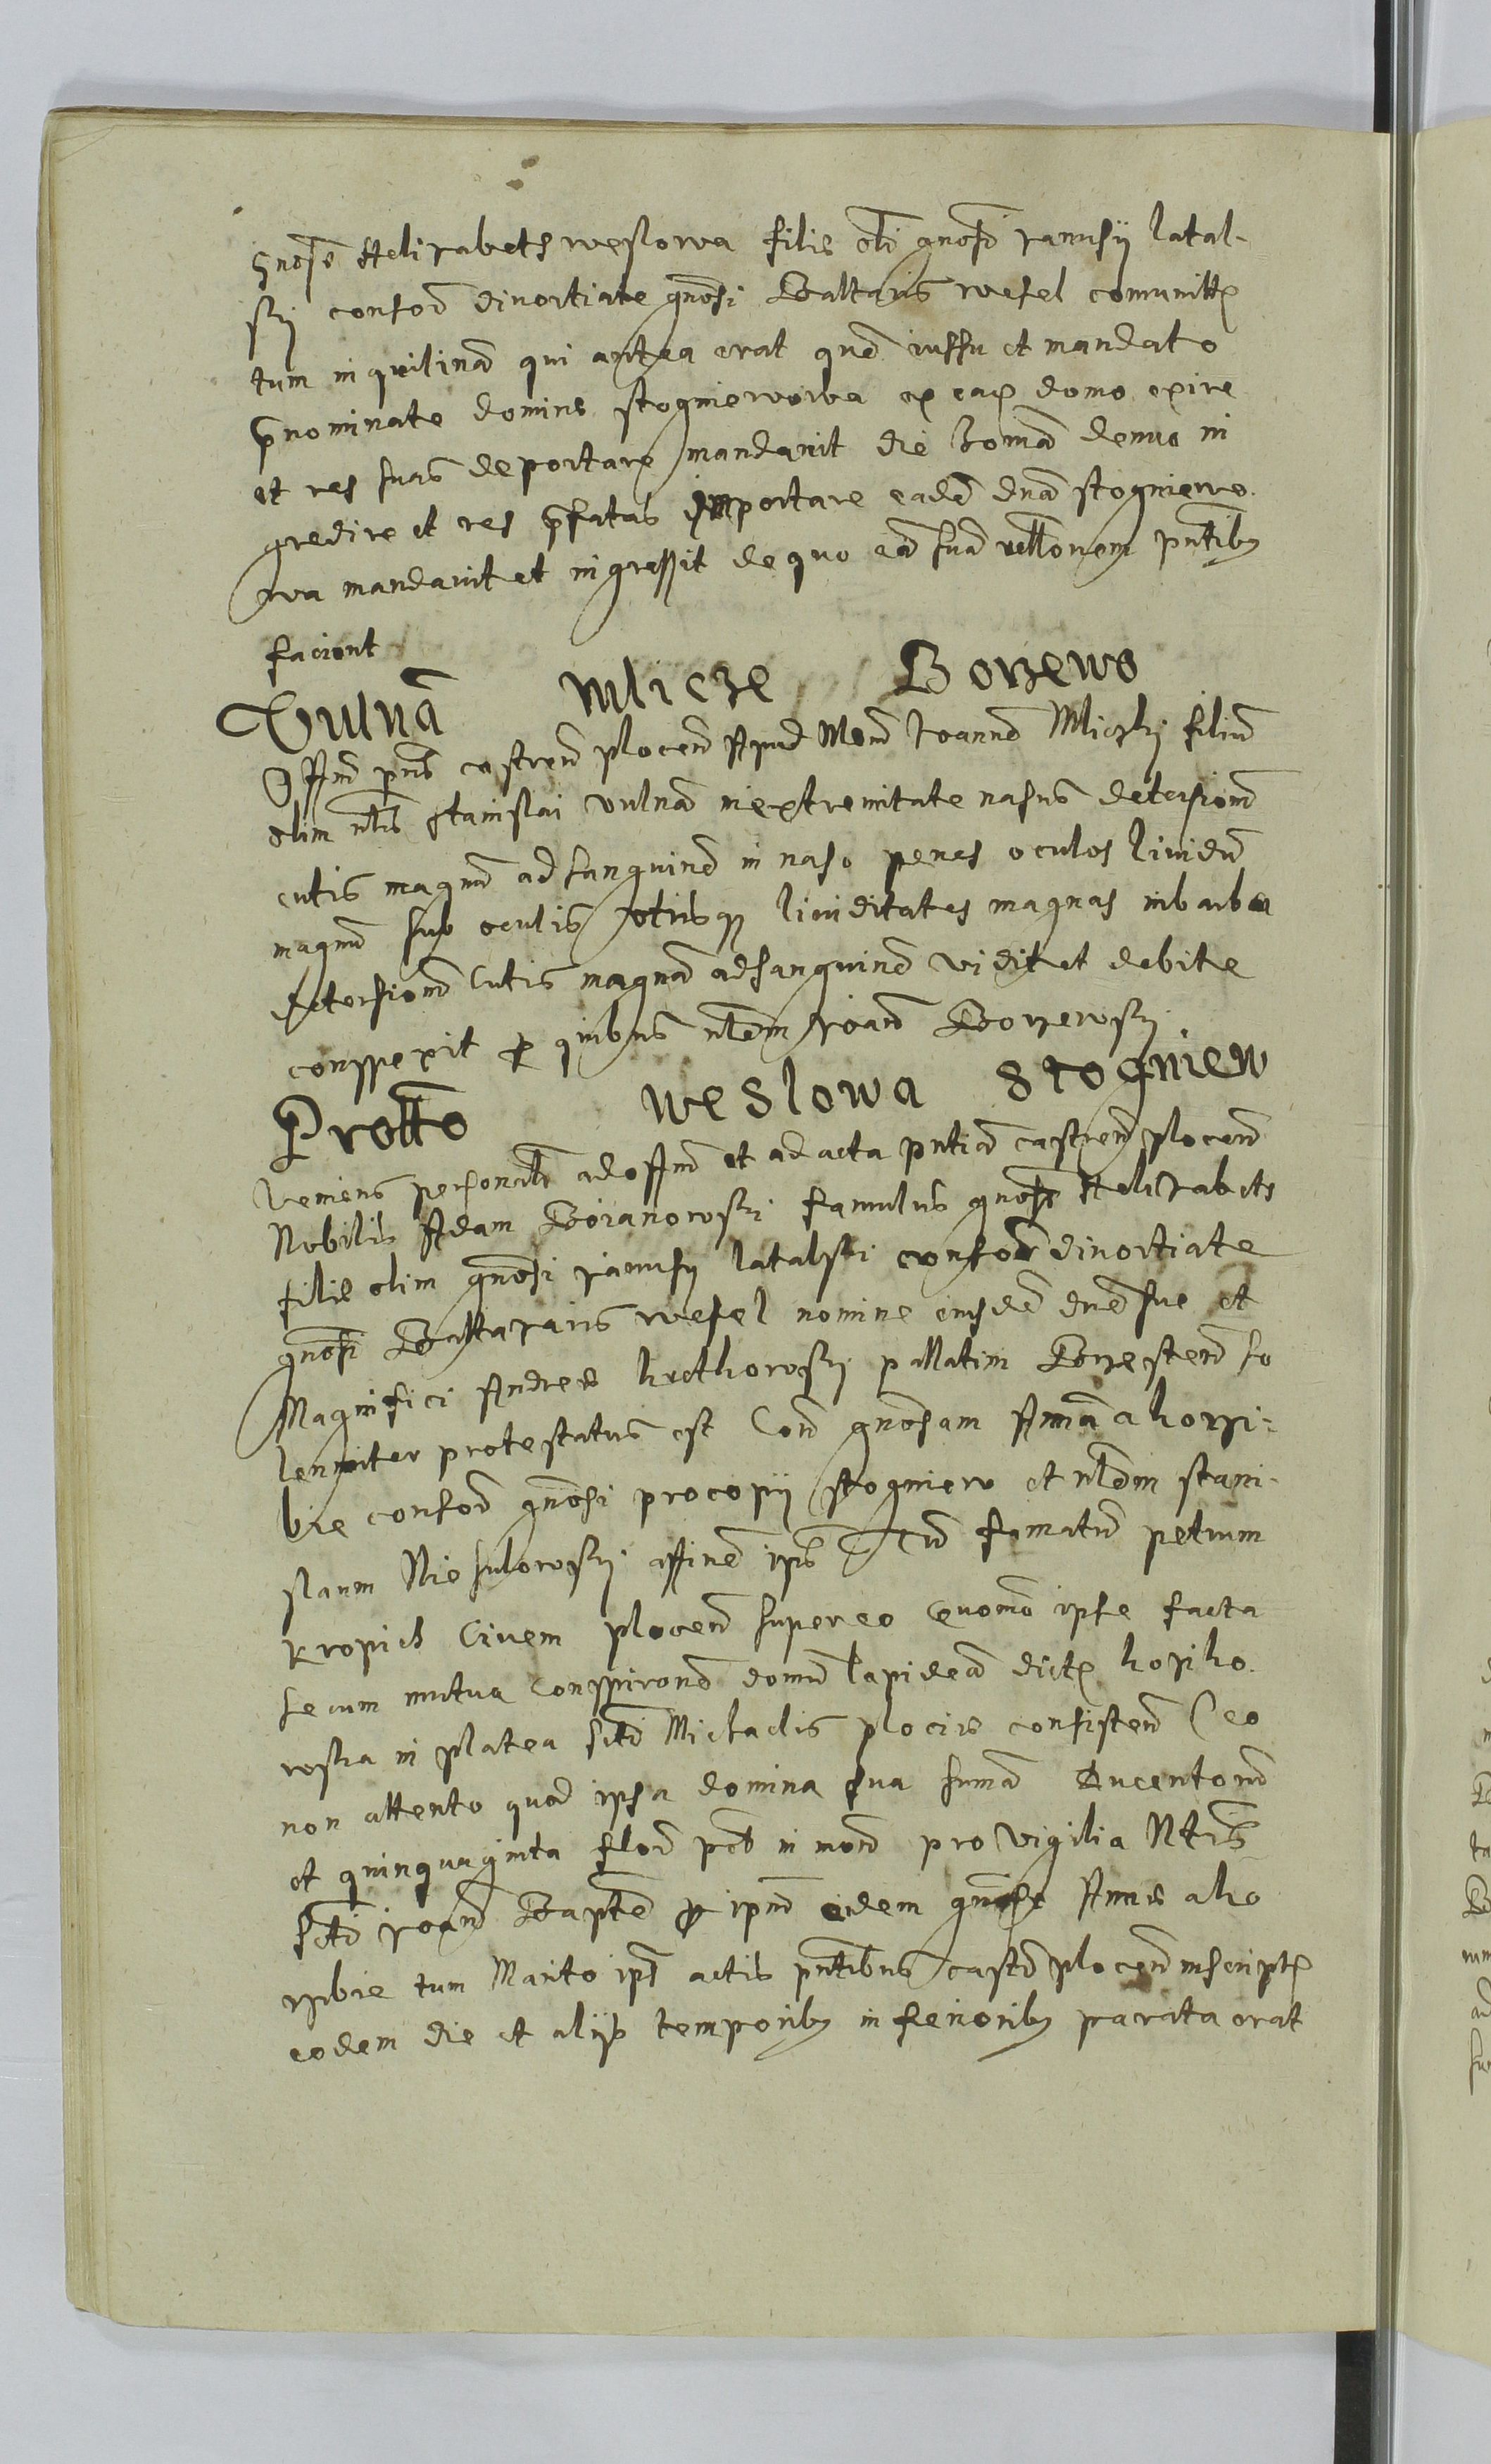 gnose Helizabeth weslowa filie olim gnosi Janusii latal-
ski consor divortiate gnosi Baltazaris wesel comunitter
tum inquilinam qui antea erat quem iussu et mandato
prenominate domine stogniewowa ex eadem domo exire
et res suas deportare mandavit die Roman denuo in
gredire et res prefatas importare eadem dna stogniewo
wa mandavit et ingressit de quo eam suam rellonem pntibus
faciunt
Vulna Mlicze Borzewo
Offm pns castren plocen Apud Nblem Joannem Mliczki filium
olim nblis Stanislai vulnam in extremitate nasus detersionem
cutis magnam ad sanguinem in naso penes oculos lividum
magnum sub oculis utrisque lividitates magnas in barba
detersionem Cutis magnam ad sanguinem vidit et debite
conspexit pro quibus nblem Joanem Borzewski
Protto weslowa Stogniew
Veniens personalr ad offm et ad acta pntia castren plocen
Nobilis Adam Boianowski famulus gnose Helizabeth
filie olim gnosi Janusii latalski consor divortiate
gnosi Baltazaris wesel nomine eiusdem dne sue et
Magnifici Andree krethkowski pallatini Brzesten so
lenniter protestatus est Con gnosam Annam a korzi-
bie consor gnosi procopii stogniew et nblem stani-
slaum Niesulowski affinem ips Tum famatum petrum
kropich Civem plocen super eo Quomo ipse facta
secum mutua conspironem domum lapideam dictam kossko
wska in platea Scti Michaelis plocie consisten Ceo
non attento quod ipsa domina sua sumam Ducentorum
et quinquaginta flor pecu in mon pro vigilia Ntis
Scti Joan Bapte per ipm eidem gnose Anne a ko
rzibie tum Marito ips actis pntibus castr plocen inscriptam
eodem die et aliis temporibus inferioribus parata erat